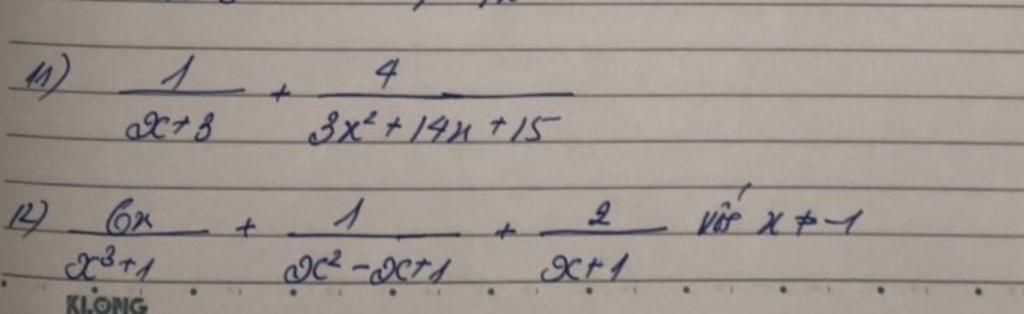 11) 1/(x+3) + 4/(3x² + 14x + 15)
12) 6x/(x³+1) + 1/(x² - x + 1) + 2/(x+1) với x ≠ -1
KLONG